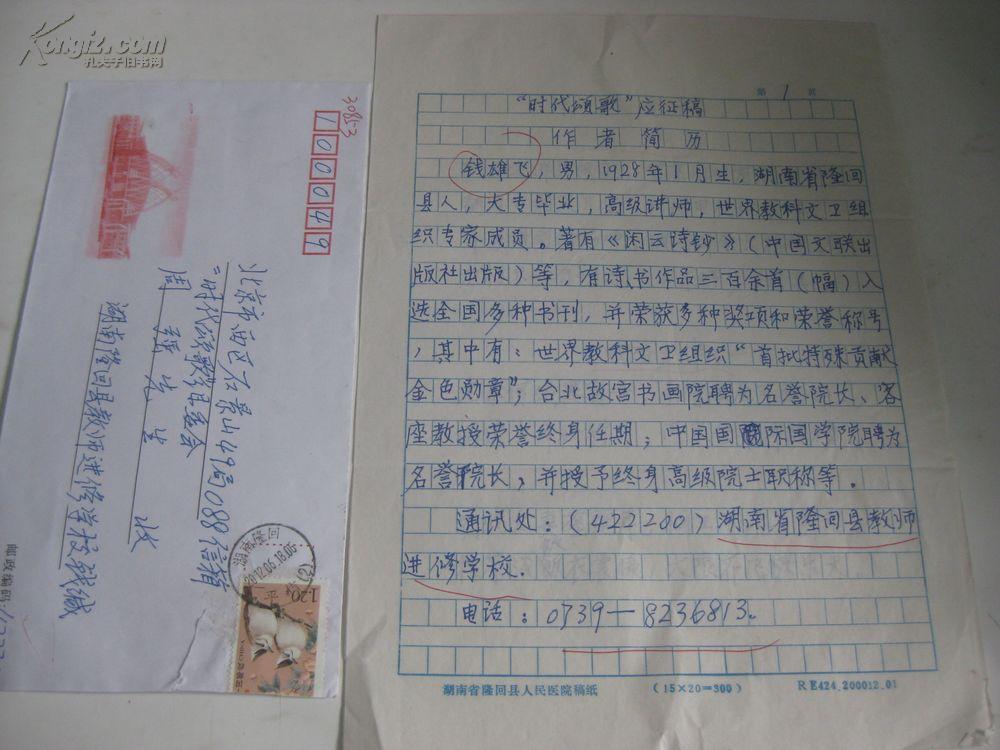 Kongfz.com
孔夫子旧书网
3081-3
100049
北京市西区石景山49局088信箱
"时代颂歌"组委会
周 先生 收
湖南隆回县教师进修学校钱缄
邮政编码:
湖南隆回
2012.06.18.05
1.20
第 1 页
"时代颂歌"应征稿
作者简历
钱雄飞,男,1928年1月生,湖南省隆回
县人,大专毕业,高级讲师,世界教科文卫组
织专家成员。著有《闲云诗钞》(中国文联出
版社出版)等,有诗书作品三百余首(幅)入
选全国多种书刊,并荣获多种奖项和荣誉称号
,其中有:世界教科文卫组织"首批特殊贡献
金色勋章";台北故宫书画院聘为名誉院长、客
座教授荣誉终身任期;中国国际国学院聘为
名誉院长,并授予终身高级院士职称等。
通讯处:(422200)湖南省隆回县教师
进修学校.
电话:0739—8236813。
湖南省隆回县人民医院稿纸 (15×20=300) RE424.200012.01